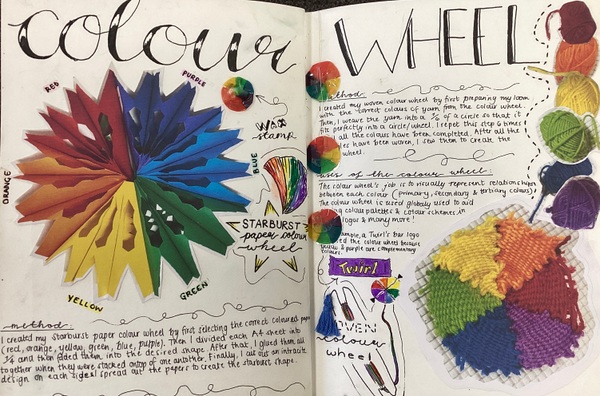 colour
WHEEL
RED
PURPLE
ORANGE
BLUE
YELLOW
GREEN
wax
stamp
STARBURST
paper colour
wheel
method
I created my starburst paper colour wheel by first selecting the correct coloured paper
(red, orange, yellow, green, blue, purple). Then I divided each A4 sheet into
and then folded them into the desired shape. After that, I glued them all
together when they were stacked ontop of one another. Finally, I cut out an intricate
design on each side & spread out the papers to create the starburst shape.
method
I created my woven colour wheel by first preparing my loom
with the correct colours of yarn from the colour wheel.
Then, I weave the yarn into a 1/6 of a circle so that it
fits perfectly into a circle/wheel. I repet this step 6 times
all the colours have been completed. After all the
have been woven, I sew them to create the
wheel.
uses of the colour wheel:
The colour wheel's job is to visually represent relationships
between each colour (primary, secondary & tertiary colours)
The colour wheel is used globally used to aid
colour palettes & colour schemes in
logos & many more!
a Twirl's bar logo
the colour wheel because
& purple are complementary
Twirl
WOVEN
colour
wheel